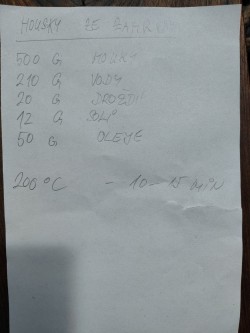 HOUSKY ZE ZAHRA
500 G MOUKY
210 G VODY
20 G DROŽDÍ
12 G SOLI
50 G OLEJE
200°C - 10-15 MIN